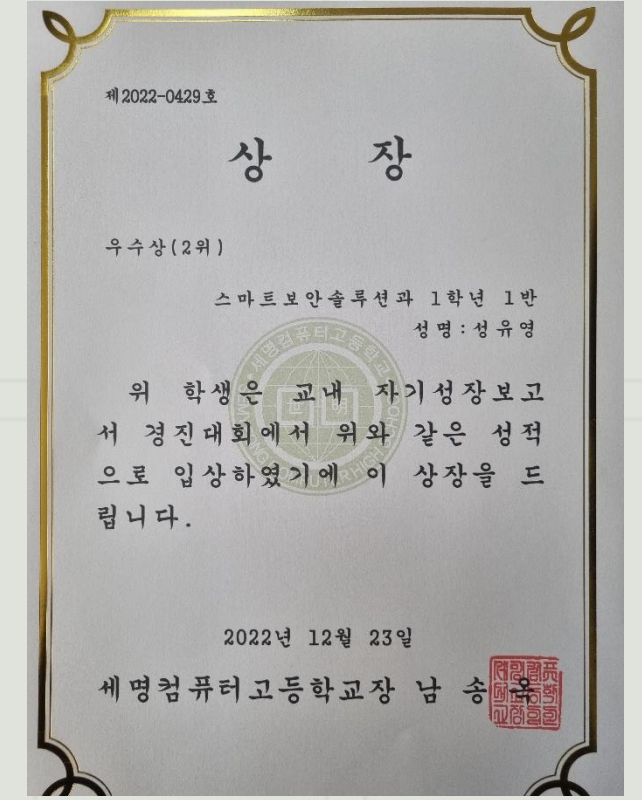 제2022-0429호
상 장
우수상(2위)
스마트보안솔루션과 1학년 1반
성명:성유영
위 학생은 교내 자기성장보고
서 경진대회에서 위와 같은 성적
으로 입상하였기에 이 상장을 드
립니다.
세명컴퓨터고등학교
2022년 12월 23일
세명컴퓨터고등학교장 남 송 옥